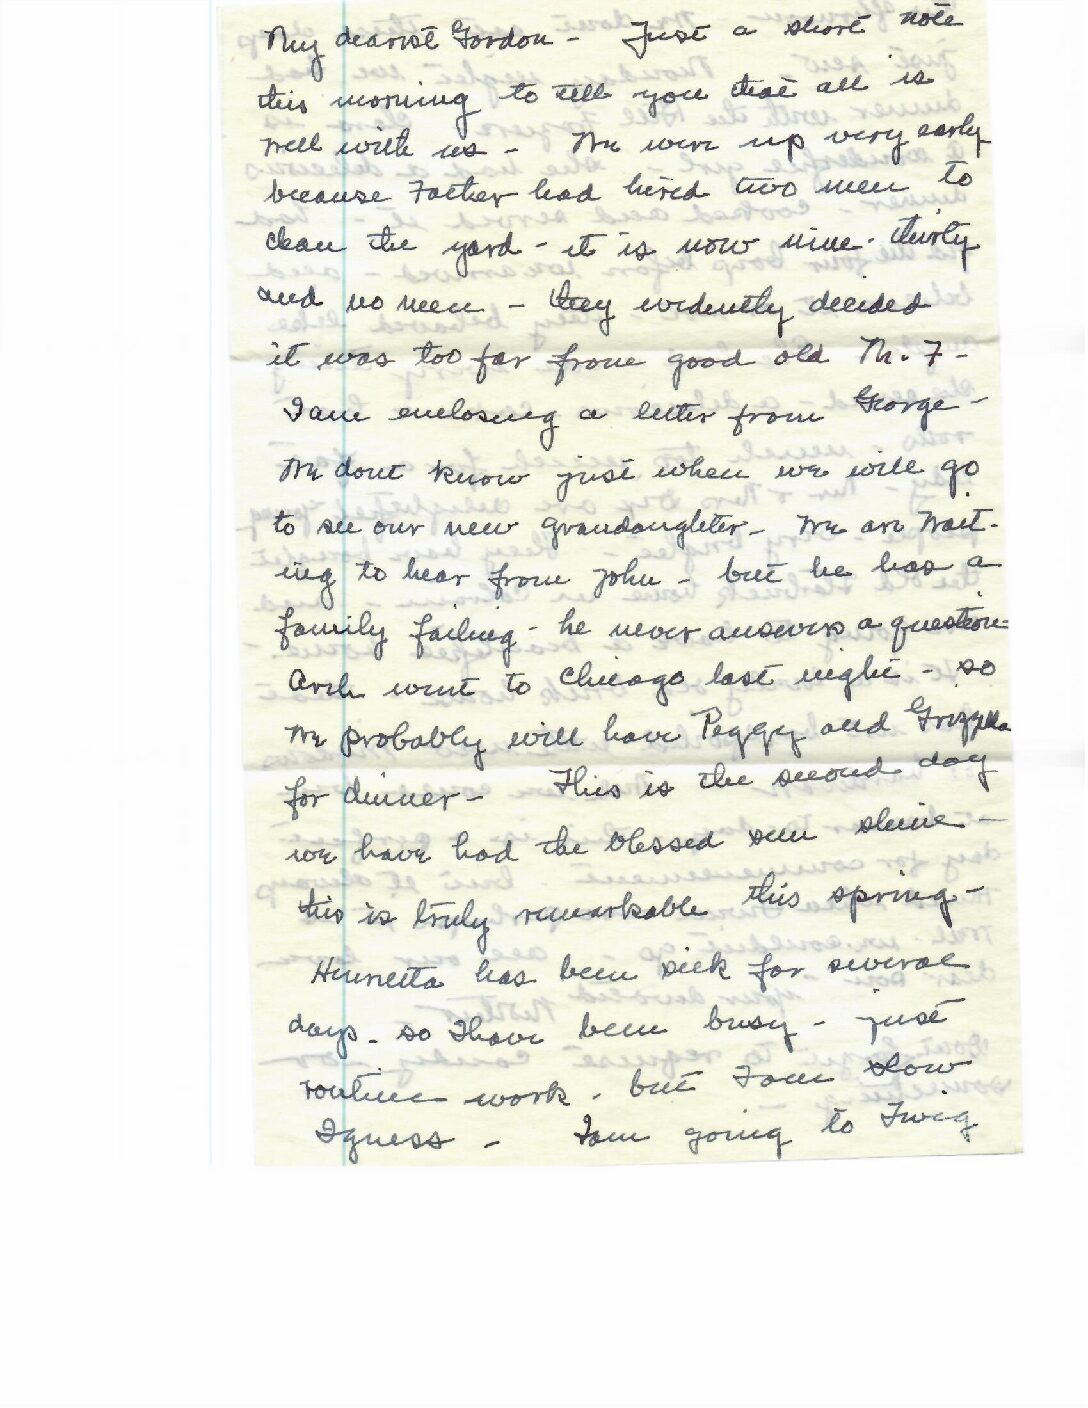 My dearest Gordon - Just a short note
this morning to tell you that all is
well with us - We were up very early
because Father had hired two men to
clean the yard - it is now nine-thirty
and no men - they evidently decided
it was too far from good old Th. F -
I am enclosing a letter from George -
We dont know just when we will go
to see our new grandaughter - We are wait-
ing to hear from John - but he has a
family failing - he never answers a question -
Arch went to Chicago last night - so
we probably will have Peggy and Grizzella
for dinner - This is the second day
we have had the blessed sun shine -
this is truly remarkable this spring -
Henrietta has been sick for several
days - so I have been busy - just
routine work - but I am slow
I guess - I am going to Twig